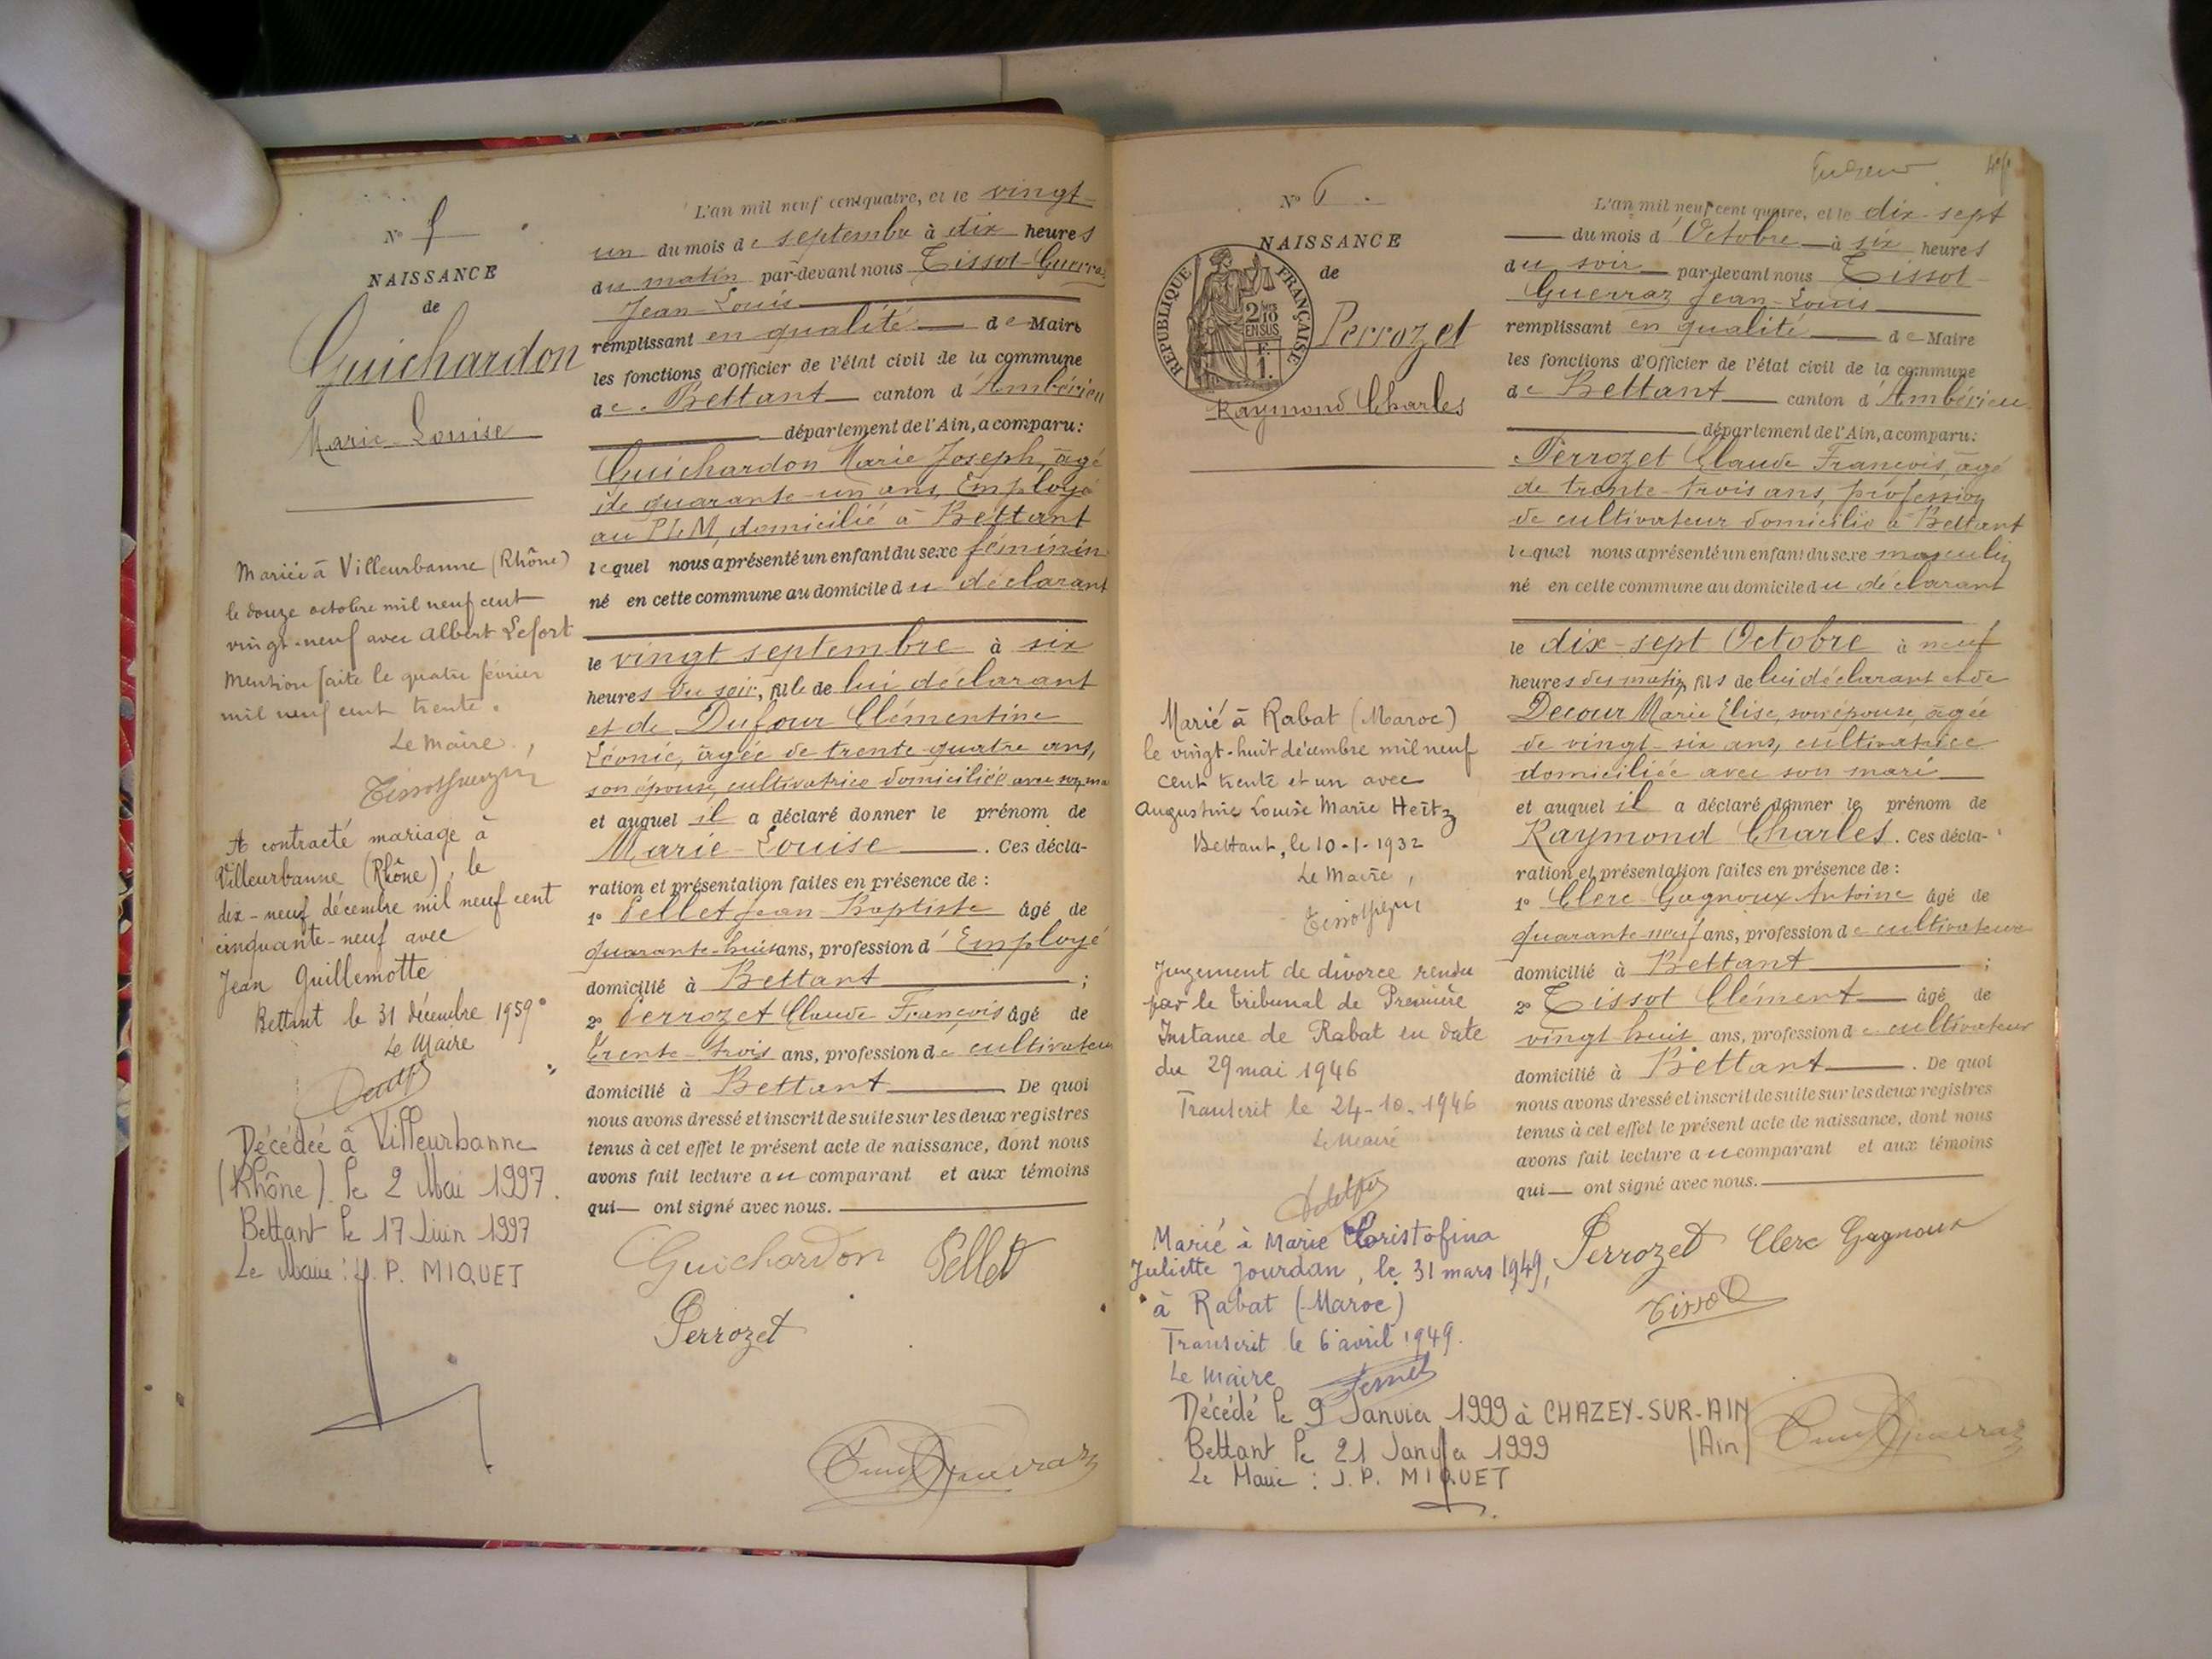 N° 5
NAISSANCE
de
Guichardon
Marie-Louise
Mariée à Villeurbanne (Rhône)
le douze octobre mil neuf cent
vingt-neuf avec Albert Lefort
Mention faite le quatre février
mil neuf cent trente.
Le Maire,
A contracté mariage à
Villeurbanne (Rhône), le
dix-neuf décembre mil neuf cent
cinquante-neuf avec
Jean Guillemotte
Bettant le 31 décembre 1959
Le Maire
Décédée à Villeurbanne
(Rhône) le 2 Mai 1997.
Bettant le 17 Juin 1997
Le Maire : J. P. MIQUET
L'an mil neuf cent quatre, et le vingt-
un du mois de septembre à dix heures
du matin par-devant nous Tissot-Guerraz
Jean-Louis
remplissant en qualité de Maire
les fonctions d'Officier de l'état civil de la commune
de Bettant canton d'Ambérieu
département de l'Ain, a comparu :
Guichardon Marie Joseph, âgé
de quarante-un ans, Employé
au PLM, domicilié à Bettant
lequel nous a présenté un enfant du sexe féminin
né en cette commune au domicile du déclarant
le vingt septembre à six
heures du soir, fille de lui déclarant
et de Dufour Clémentine
Léonie, âgée de trente-quatre ans,
son épouse, cultivatrice domiciliée avec son ma
et auquel il a déclaré donner le prénom de
Marie-Louise. Ces décla-
ration et présentation faites en présence de :
1° Pellet Jean-Baptiste âgé de
quarante-huit ans, profession d'Employé
domicilié à Bettant ;
2° Perrozet Claude François âgé de
trente-trois ans, profession de cultivateur
domicilié à Bettant De quoi
nous avons dressé et inscrit de suite sur les deux registres
tenus à cet effet le présent acte de naissance, dont nous
avons fait lecture au comparant et aux témoins
qui ont signé avec nous.
Guichardon Pellet
Perrozet
N° 6.
NAISSANCE
de
REPUBLIQUE FRANÇAISE
2/10 EN SUS
F. 1.
Perrozet
Raymond Charles
Marié à Rabat (Maroc)
le vingt-huit décembre mil neuf
cent trente et un avec
Augustine Louise Marie Heitz
Bettant, le 10-1-1932
Le Maire,
Jugement de divorce rendu
par le Tribunal de Première
Instance de Rabat en date
du 29 mai 1946
Transcrit le 24-10-1946
Le Maire
Marié à Marie Cristofina
Juliette Jourdan, le 31 mars 1949,
à Rabat (Maroc)
Transcrit le 6 avril 1949.
Le Maire
Décédé le 9 Janvier 1999 à CHAZEY-SUR-AIN
(Ain)
Bettant le 21 Janvier 1999
Le Maire : J. P. MIQUET
L'an mil neuf cent quatre, et le dix-sept
du mois d'Octobre à six heures
du soir par-devant nous Tissot-
Guerraz Jean-Louis
remplissant en qualité de Maire
les fonctions d'Officier de l'état civil de la commune
de Bettant canton d'Ambérieu
département de l'Ain, a comparu :
Perrozet Claude François, âgé
de trente-trois ans, profession
de cultivateur domicilié à Bettant
lequel nous a présenté un enfant du sexe masculin
né en cette commune au domicile du déclarant
le dix-sept Octobre à neuf
heures du matin, fils de lui déclarant et de
Decour Marie Elise, son épouse, âgée
de vingt-six ans, cultivatrice
domiciliée avec son mari
et auquel il a déclaré donner le prénom de
Raymond Charles. Ces décla-
ration et présentation faites en présence de :
1° Clerc-Gagnoux Antoine âgé de
quarante-neuf ans, profession de cultivateur
domicilié à Bettant ;
2° Tissot Clément âgé de
vingt-huit ans, profession de cultivateur
domicilié à Bettant. De quoi
nous avons dressé et inscrit de suite sur les deux registres
tenus à cet effet le présent acte de naissance, dont nous
avons fait lecture au comparant et aux témoins
qui ont signé avec nous.
Perrozet Clerc Gagnoux
Tissot